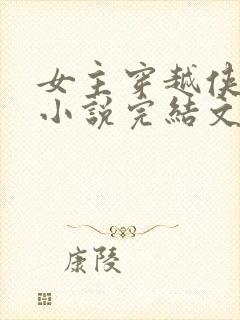 女主穿越侠
小说完结文
康陵